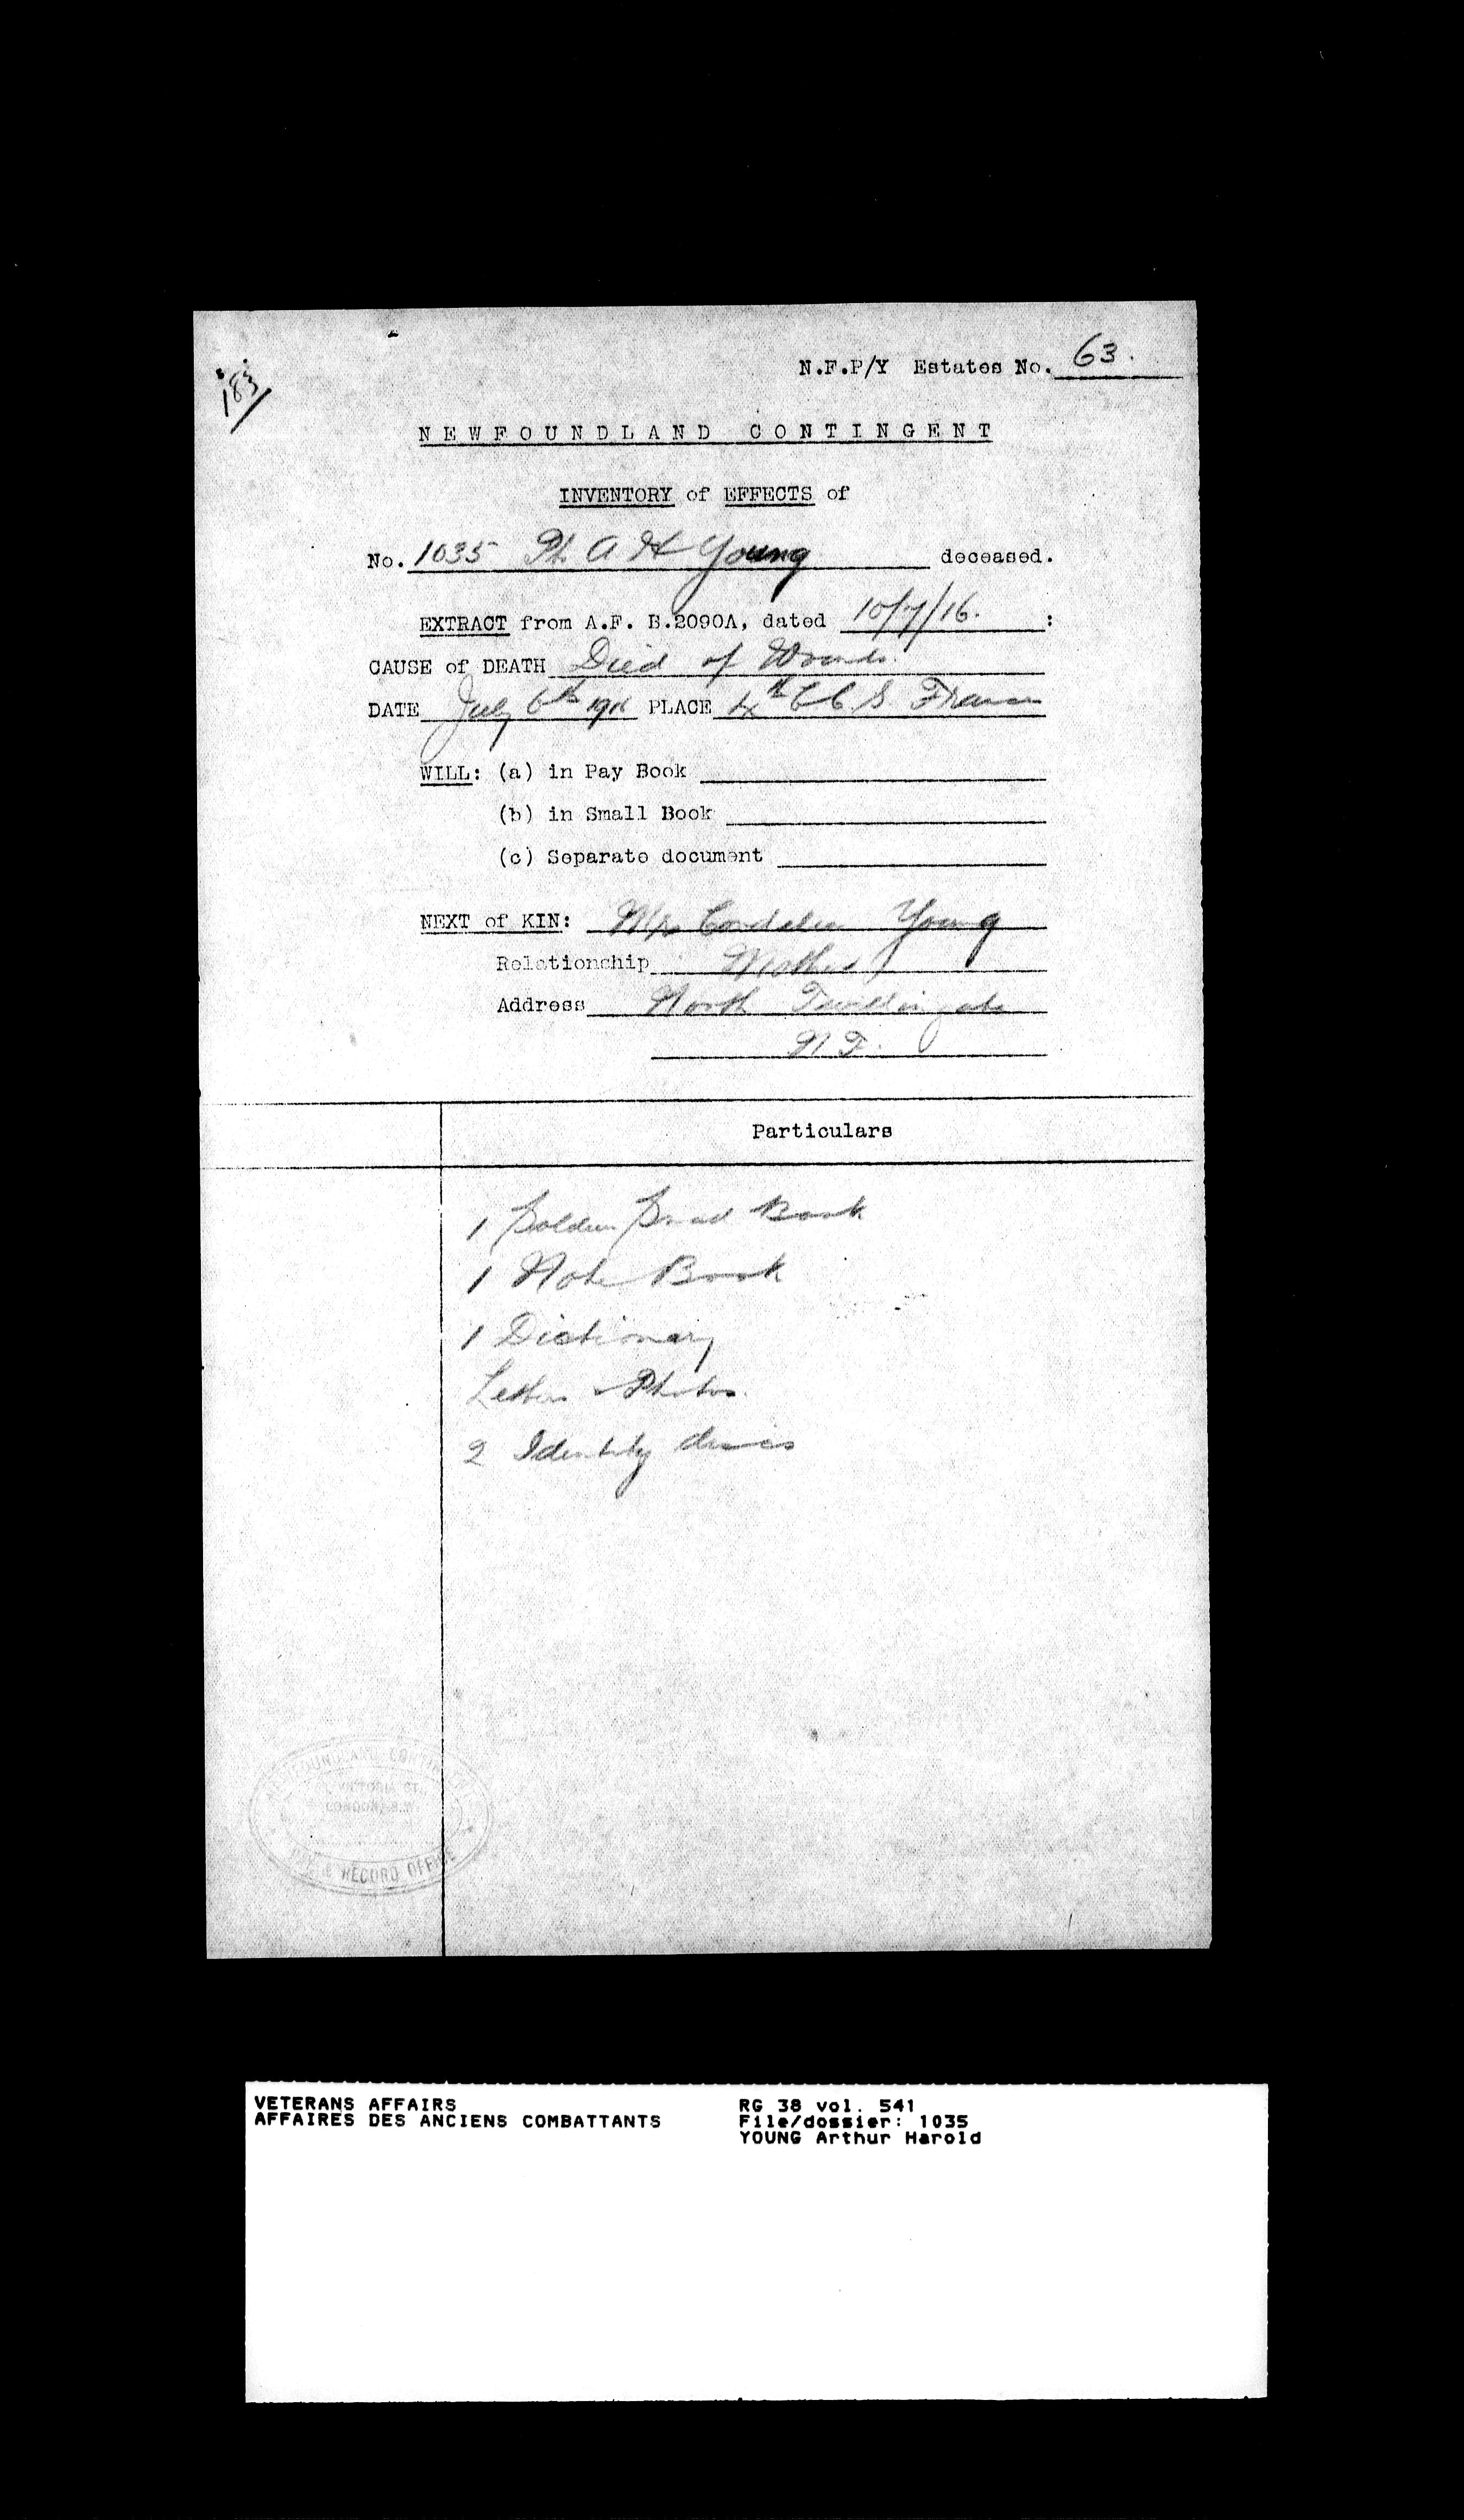 183
N.F.P/Y Estates No. 63.
NEWFOUNDLAND CONTINGENT
INVENTORY of EFFECTS of
No. 1035 Pt. A H Young deceased.
EXTRACT from A.F. B.2090A, dated 10/7/16. :
CAUSE of DEATH Died of Wounds.
DATE July 6th 1916 PLACE 4th C.C.S. France
WILL: (a) in Pay Book
(b) in Small Book
(c) Separate document
NEXT of KIN: Mrs Cordelia Young
Relationship Mother
Address North Twillingate
N.F.
Particulars
1 Book
1 Note Book
1 Dictionary
Letters & Photos.
2 Identity discs
NEWFOUNDLAND CONTINGENT
VICTORIA ST.
LONDON, S.W.
RECORD OFFICE
VETERANS AFFAIRS
AFFAIRES DES ANCIENS COMBATTANTS
RG 38 vol. 541
File/dossier: 1035
YOUNG Arthur Harold